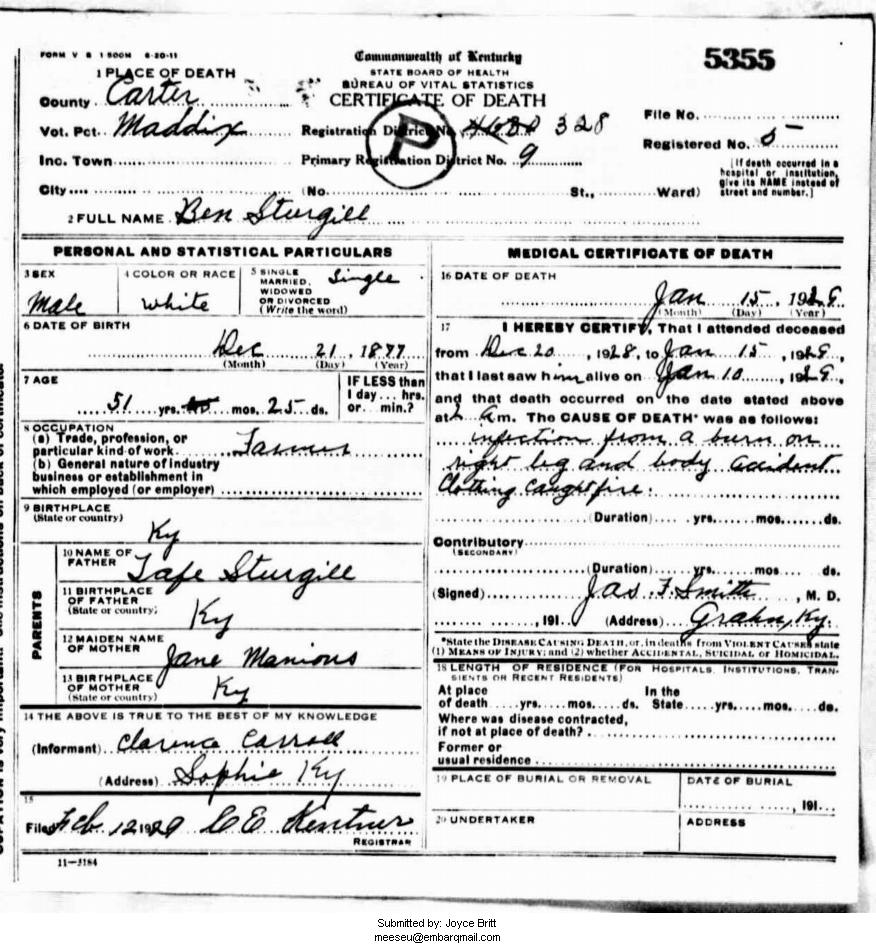 FORM V S 1 500M 6-20-11
Commonwealth of Kentucky
STATE BOARD OF HEALTH
BUREAU OF VITAL STATISTICS
CERTIFICATE OF DEATH
5355
1 PLACE OF DEATH
County Carter
Vot. Pct. Maddix
Inc. Town
City
Registration District No. 328
Primary Registration District No. 9
P
(No. St., Ward)
File No.
Registered No. 5
[If death occurred in a
hospital or institution,
give its NAME instead of
street and number.]
2 FULL NAME Ben Sturgill
PERSONAL AND STATISTICAL PARTICULARS
3 SEX
Male
4 COLOR OR RACE
white
5 SINGLE
MARRIED,
WIDOWED
OR DIVORCED
(Write the word)
Single
6 DATE OF BIRTH
Dec 21, 1877
(Month) (Day) (Year)
7 AGE
51 yrs. mos. 25 ds.
IF LESS than
1 day... hrs.
or... min.?
8 OCCUPATION
(a) Trade, profession, or
particular kind of work Farmer
(b) General nature of industry
business or establishment in
which employed (or employer)
9 BIRTHPLACE
(State or country)
Ky
PARENTS
10 NAME OF
FATHER Tafe Sturgill
11 BIRTHPLACE
OF FATHER
(State or country)
Ky
12 MAIDEN NAME
OF MOTHER
Jane Manious
13 BIRTHPLACE
OF MOTHER
(State or country)
Ky
14 THE ABOVE IS TRUE TO THE BEST OF MY KNOWLEDGE
(Informant) Clarence Carroll
(Address) Sophie Ky
15
Filed Feb. 12 1929 C E Kentner
REGISTRAR
11-3184
MEDICAL CERTIFICATE OF DEATH
16 DATE OF DEATH
Jan 15, 1929
(Month) (Day) (Year)
17 I HEREBY CERTIFY, That I attended deceased
from Dec 20, 1928, to Jan 15, 1929,
that I last saw him alive on Jan 10, 1929,
and that death occurred on the date stated above
at 2 am. The CAUSE OF DEATH* was as follows:
infection from a burn on
right leg and body accident
Clothing caught fire.
(Duration) yrs. mos. ds.
Contributory
(SECONDARY)
(Duration) yrs. mos. ds.
(Signed) Jas F Smith, M. D.
, 191 (Address) Grahn, Ky.
*State the DISEASE CAUSING DEATH, or, in deaths from VIOLENT CAUSES state
(1) MEANS OF INJURY; and (2) whether ACCIDENTAL, SUICIDAL or HOMICIDAL.
18 LENGTH OF RESIDENCE (FOR HOSPITALS, INSTITUTIONS, TRAN-
SIENTS OR RECENT RESIDENTS)
At place
of death yrs. mos. ds.
In the
State yrs. mos. ds.
Where was disease contracted,
if not at place of death?
Former or
usual residence
19 PLACE OF BURIAL OR REMOVAL
DATE OF BURIAL
, 191
20 UNDERTAKER
ADDRESS
Submitted by: Joyce Britt
meeseu@embarqmail.com